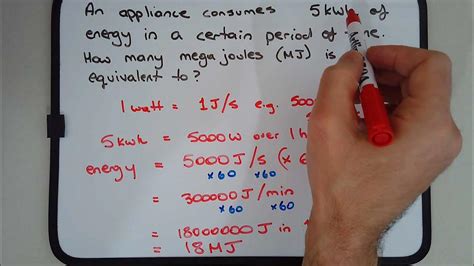 An appliance consumes 5kwh of
energy in a certain period of
How many megajoules (MJ) is
equivalent to?
1 watt = 1J/s e.g. 500
5kwh = 5000W over 1h
energy = 5000J/s (x 6
x60 x60
= 300000J/min
x60 x60
= 18000000J in
= 18MJ